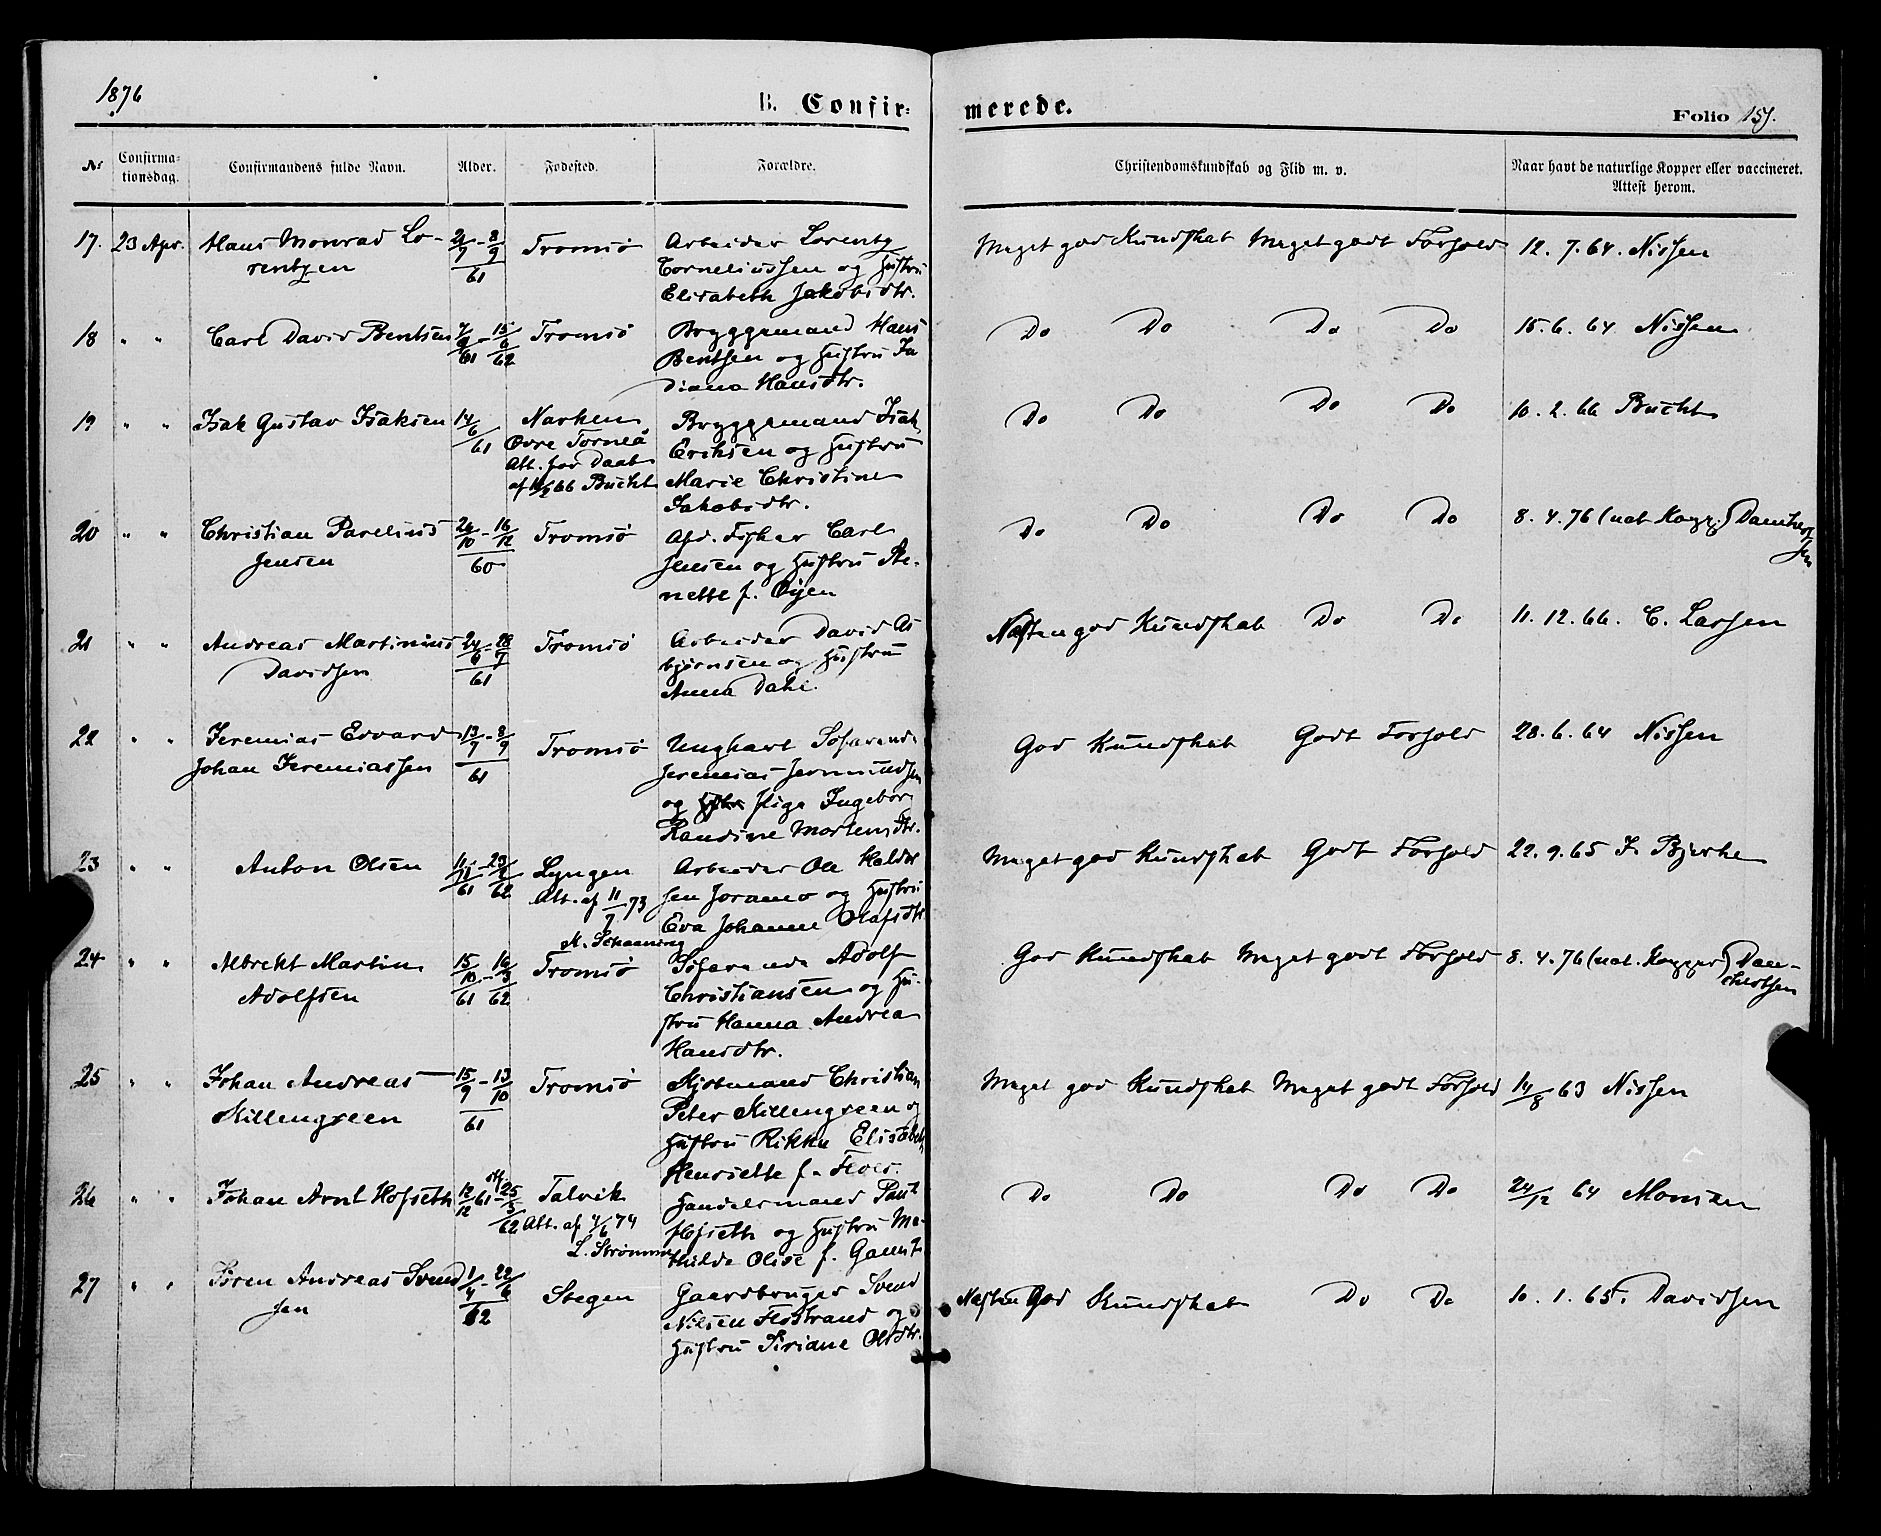 1876
B. Confir-
merede.
Folio 157.
Nr
Confirma-
tionsdag.
Confirmandens fulde Navn.
Alder.
Fødested.
Forældre.
Christendomskundskab og Flid m. v.
Naar havt de naturlige Kopper eller vaccineret.
Attest herom.
17. 23 Apr. Hans Monrad Lo- 21/7 - 8/9 Tromsø Arbeider Lorentz Meget god Kundskab Meget godt Forhold 12. 7. 64. Nissen
rentzen 61 Corneliussen og Hustru
Elisabeth Jakobsdtr.
18 " " Carl David Bentsen 61 - 15/6 62 Tromsø Bryggemand Hans Do Do Do Do 15. 6. 64 Nissen
Bentsen og Hustru In
diana Hansdtr.
19 " " Isak Gustav Isaksen 14/6 61 Narken Bryggemand Isak Do Do Do Do 10. 2. 66 Bucht
Øvre Torneå Eriksen og Hustru
Att. for Daab Marie Christine
af 10/2 66 Bucht Jakobsdtr.
20 " " Christian Parelius 26/10 - 16/12 Tromsø Afd. Fisker Carl Do Do Do Do 8. 4. 76 (nat. Kopp.)
Jensen 60 Jensen og Hustru Re-
nette f. Øyen
21 " " Andreas Martinius 24/6 - 28/7 Tromsø Arbeider David As Næsten god Kundskab Do Do 11. 12. 66. C. Larsen
Davidsen 61 bjørnsen og Hustru
Anna Dahl.
22 " " Jeremias Edvard 13/7 - 8/9 Tromsø Ungkarl Søfarende God Kundskab Godt Forhold 28. 6. 64 Nissen
Johan Jeremiassen 61 Jeremias Jermundsen
og Pige Ingebor
Randine Mortensdtr.
23 " " Anton Olsen 11/11 61 - 23/2 62 Lyngen Arbeider Ole Halde Meget god Kundskab Godt Forhold 22. 9. 65 J. Bjerke
Att. af 11/7 73 sen Joramo og Hustru
M. Schaaning Eva Johanne Olafsdtr
24 " " Albrekt Martin 15/10 - 16/3 Tromsø Søfarende Adolf God Kundskab Meget godt Forhold 8. 4. 76 (nat. Kopper) Dan-
Adolfsen 61 62 Christiansen og Hu- chertsen
stru Hanna Andrea
Hansdtr.
25 " " Johan Andreas 15/9 - 13/10 Tromsø Kjøbmand Christian Meget god Kundskab Meget godt Forhold 14/8 63 Nissen
Killengreen 61 Peter Killengreen og
Hustru Rikke Elisabeth
Henriette f. Floer.
26 " " Johan Arnt Hofseth 12/12 61 - 25/5 62 Talvik Handelsmand Paul Do Do Do Do 24/12 64 Monsen
Att. af 4/6 74 Hofseth og Hustru Ma-
L. Strømme thilde Olise f. Gamst
27 " " Søren Andreas Svend 1/4 - 22/6 Stegen Gaardbruger Svend Næsten God Kundskab Do Do 10. 1. 65. Davidsen
sen 62 Nilsen Flostrand og
Hustru Siriane Olsdtr.